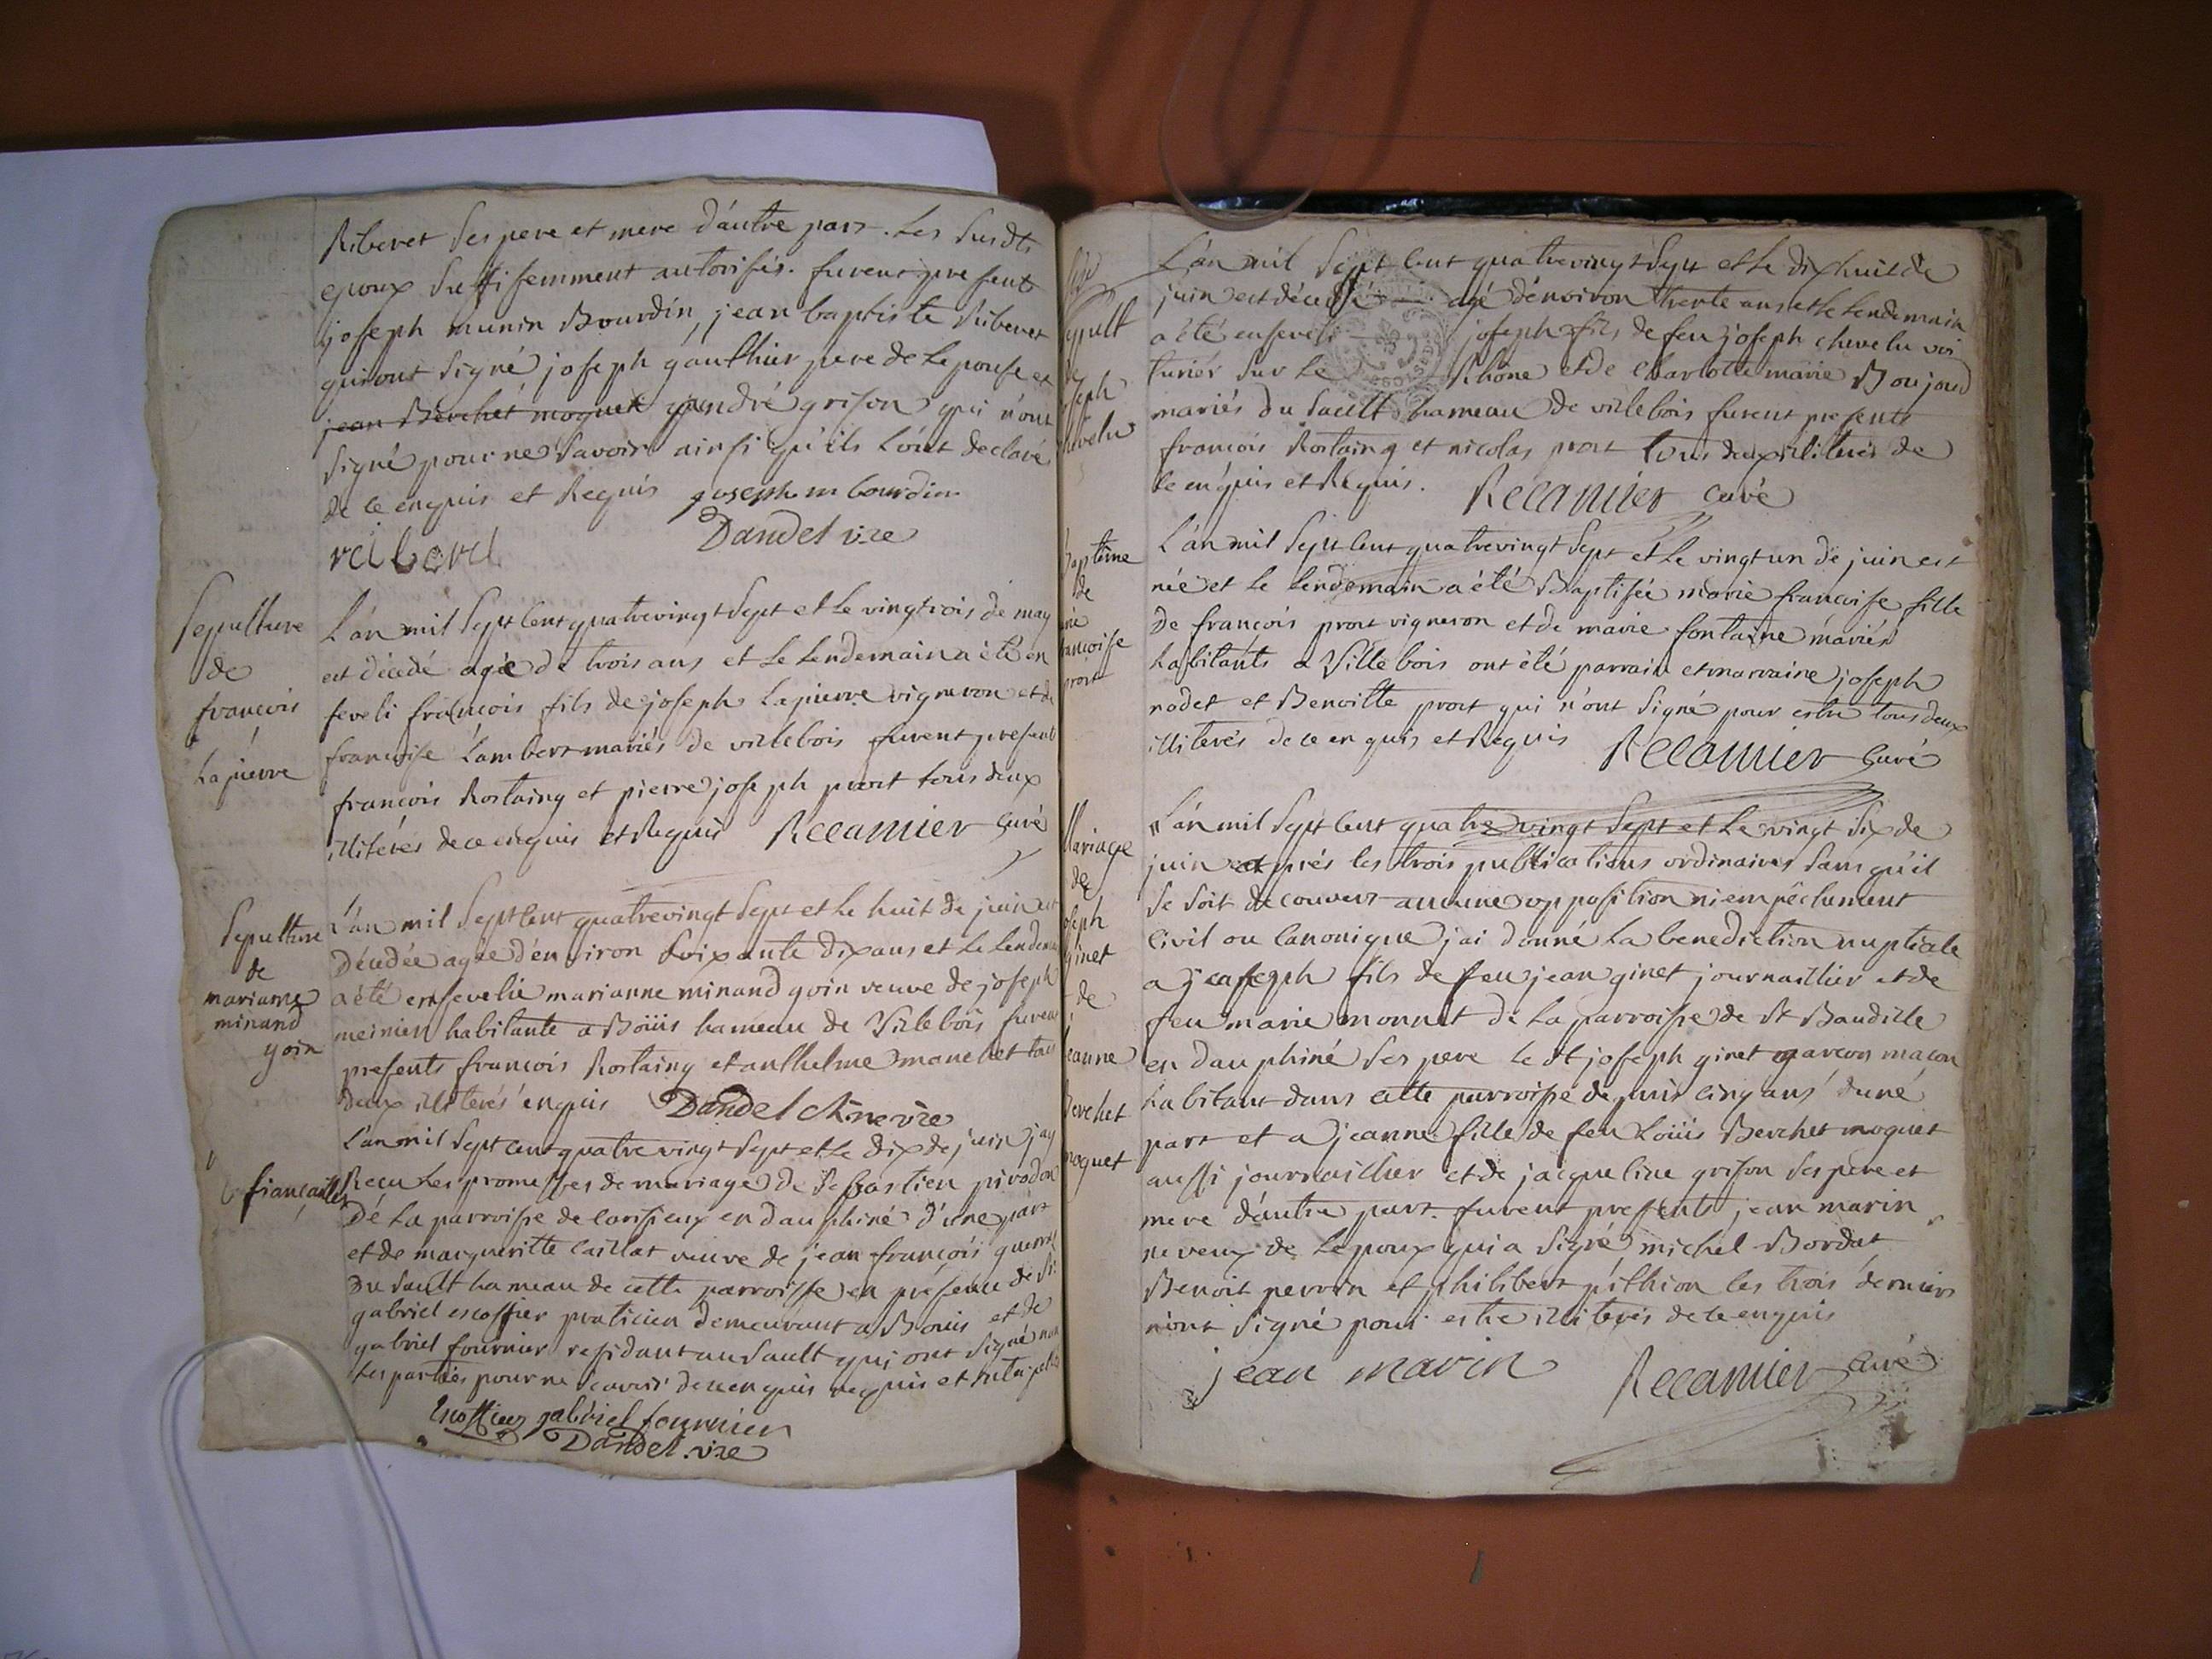 Riberet ses pere et mere d'autre part. Les susdts
epoux suffisemment autorisés. furent present
joseph munin Bourdin, jean baptiste Riberet
qui ont signé joseph gauthier pere de lepouse et
jean Berchet moquet andré grison qui n'ont
signé pour ne savoir ainsi qu'ils l'ont declaré
de ce enquis et Requis joseph m bourdin
Dandel vre
Sepulture
de
francois
Lapierre
L'an mil sept cent quatrevingt sept et le vingtrois de may
est décedé agée de trois ans et le lendemain a été en
seveli francois fils de joseph Lapierre vigneron et de
francoise Lambert mariés de villebois furent present
francois Rostaing et pierre joseph prost tous deux
illiterés de ce enquis et Requis Recamier curé
Sepulture
de
marianne
minand
goin
L'an mil sept cent quatrevingt sept et le huit de juin est
décedée agée d'environ soixante dix ans et le lendemain
a été ensevelie marianne minand goin veuve de joseph
meinier habitante a Boüis hameau de Villebois furent
presents francois Rostaing et anthelme manchet tous
deux illiterés enquis Dandel vre
fiançailles
L'an mil sept cent quatre vingt sept et le dix de juin jay
Recu les promesses de mariage de Sebastien pirodon
De la parroisse de Corisieux en dauphiné d'une part
et de margueritte Caillat veuve de jean françois guerre
du Sault hameau de cette parroisse en présence de Sr
gabriel escoffier praticien demeurant a Bouis et de
gabriel fournier residant au Sault qui ont signé non
les parties pour ne scavoir de ce enquis requis et
Escoffier gabriel fournier
Dandel . vre
Sepult
de
joseph
chevelu
L'an mil sept cent quatrevingt sept et le dix huit de
juin est décedé agé d'environ trente ans et le lendemain
a été enseveli joseph fils de feu joseph chevelu voi
turiér sur le Rhône et de charlotte marie Boujoud
mariés du Sault hameau de villebois furent presents
francois Rostaing et nicolas prost tous deux illiterés de
ce enquis et Requis. Récamier curé
Baptême
de
marie
francoise
prost
L'an mil sept cent quatrevingt sept et le vingt un de juin est
née et le lendemain a été Baptisée marie francoise fille
De francois prost vigneron et de marie fontaine mariés
habitants a Villebois ont été parrain et marraine joseph
nodet et Benoitte prost qui n'ont signé pour estre tous deux
illiterés de ce enquis et Requis Recamier curé
Mariage
de
joseph
ginet
de
jeanne
Berchet
moquet
L'an mil sept cent quatre vingt sept et le vingt six de
juin aprés les trois publications ordinaires sans qu'il
se soit decouvert aucune opposition ni empêchement
civil ou canonique jai donné la benediction nuptiale
a joseph fils de feu jean ginet journaillier et de
feu marie monnet de la parroisse de St Baudille
en dauphiné ses pere le dt joseph ginet garcon macon
habitant dans cette parroisse depuis cinq ans d'une
part et a jeanne fille de feu Loüis Berchet moquet
aussi journaillier et de jacqueline grison ses pere et
mere d'autre part. furent presents jean marin
neveux de lepoux qui a signé michel Bordat
Benoit perrin et philibert pithion les trois derniers
n'ont signé pour estre illiterés de ce enquis
jean marin Recamier curé